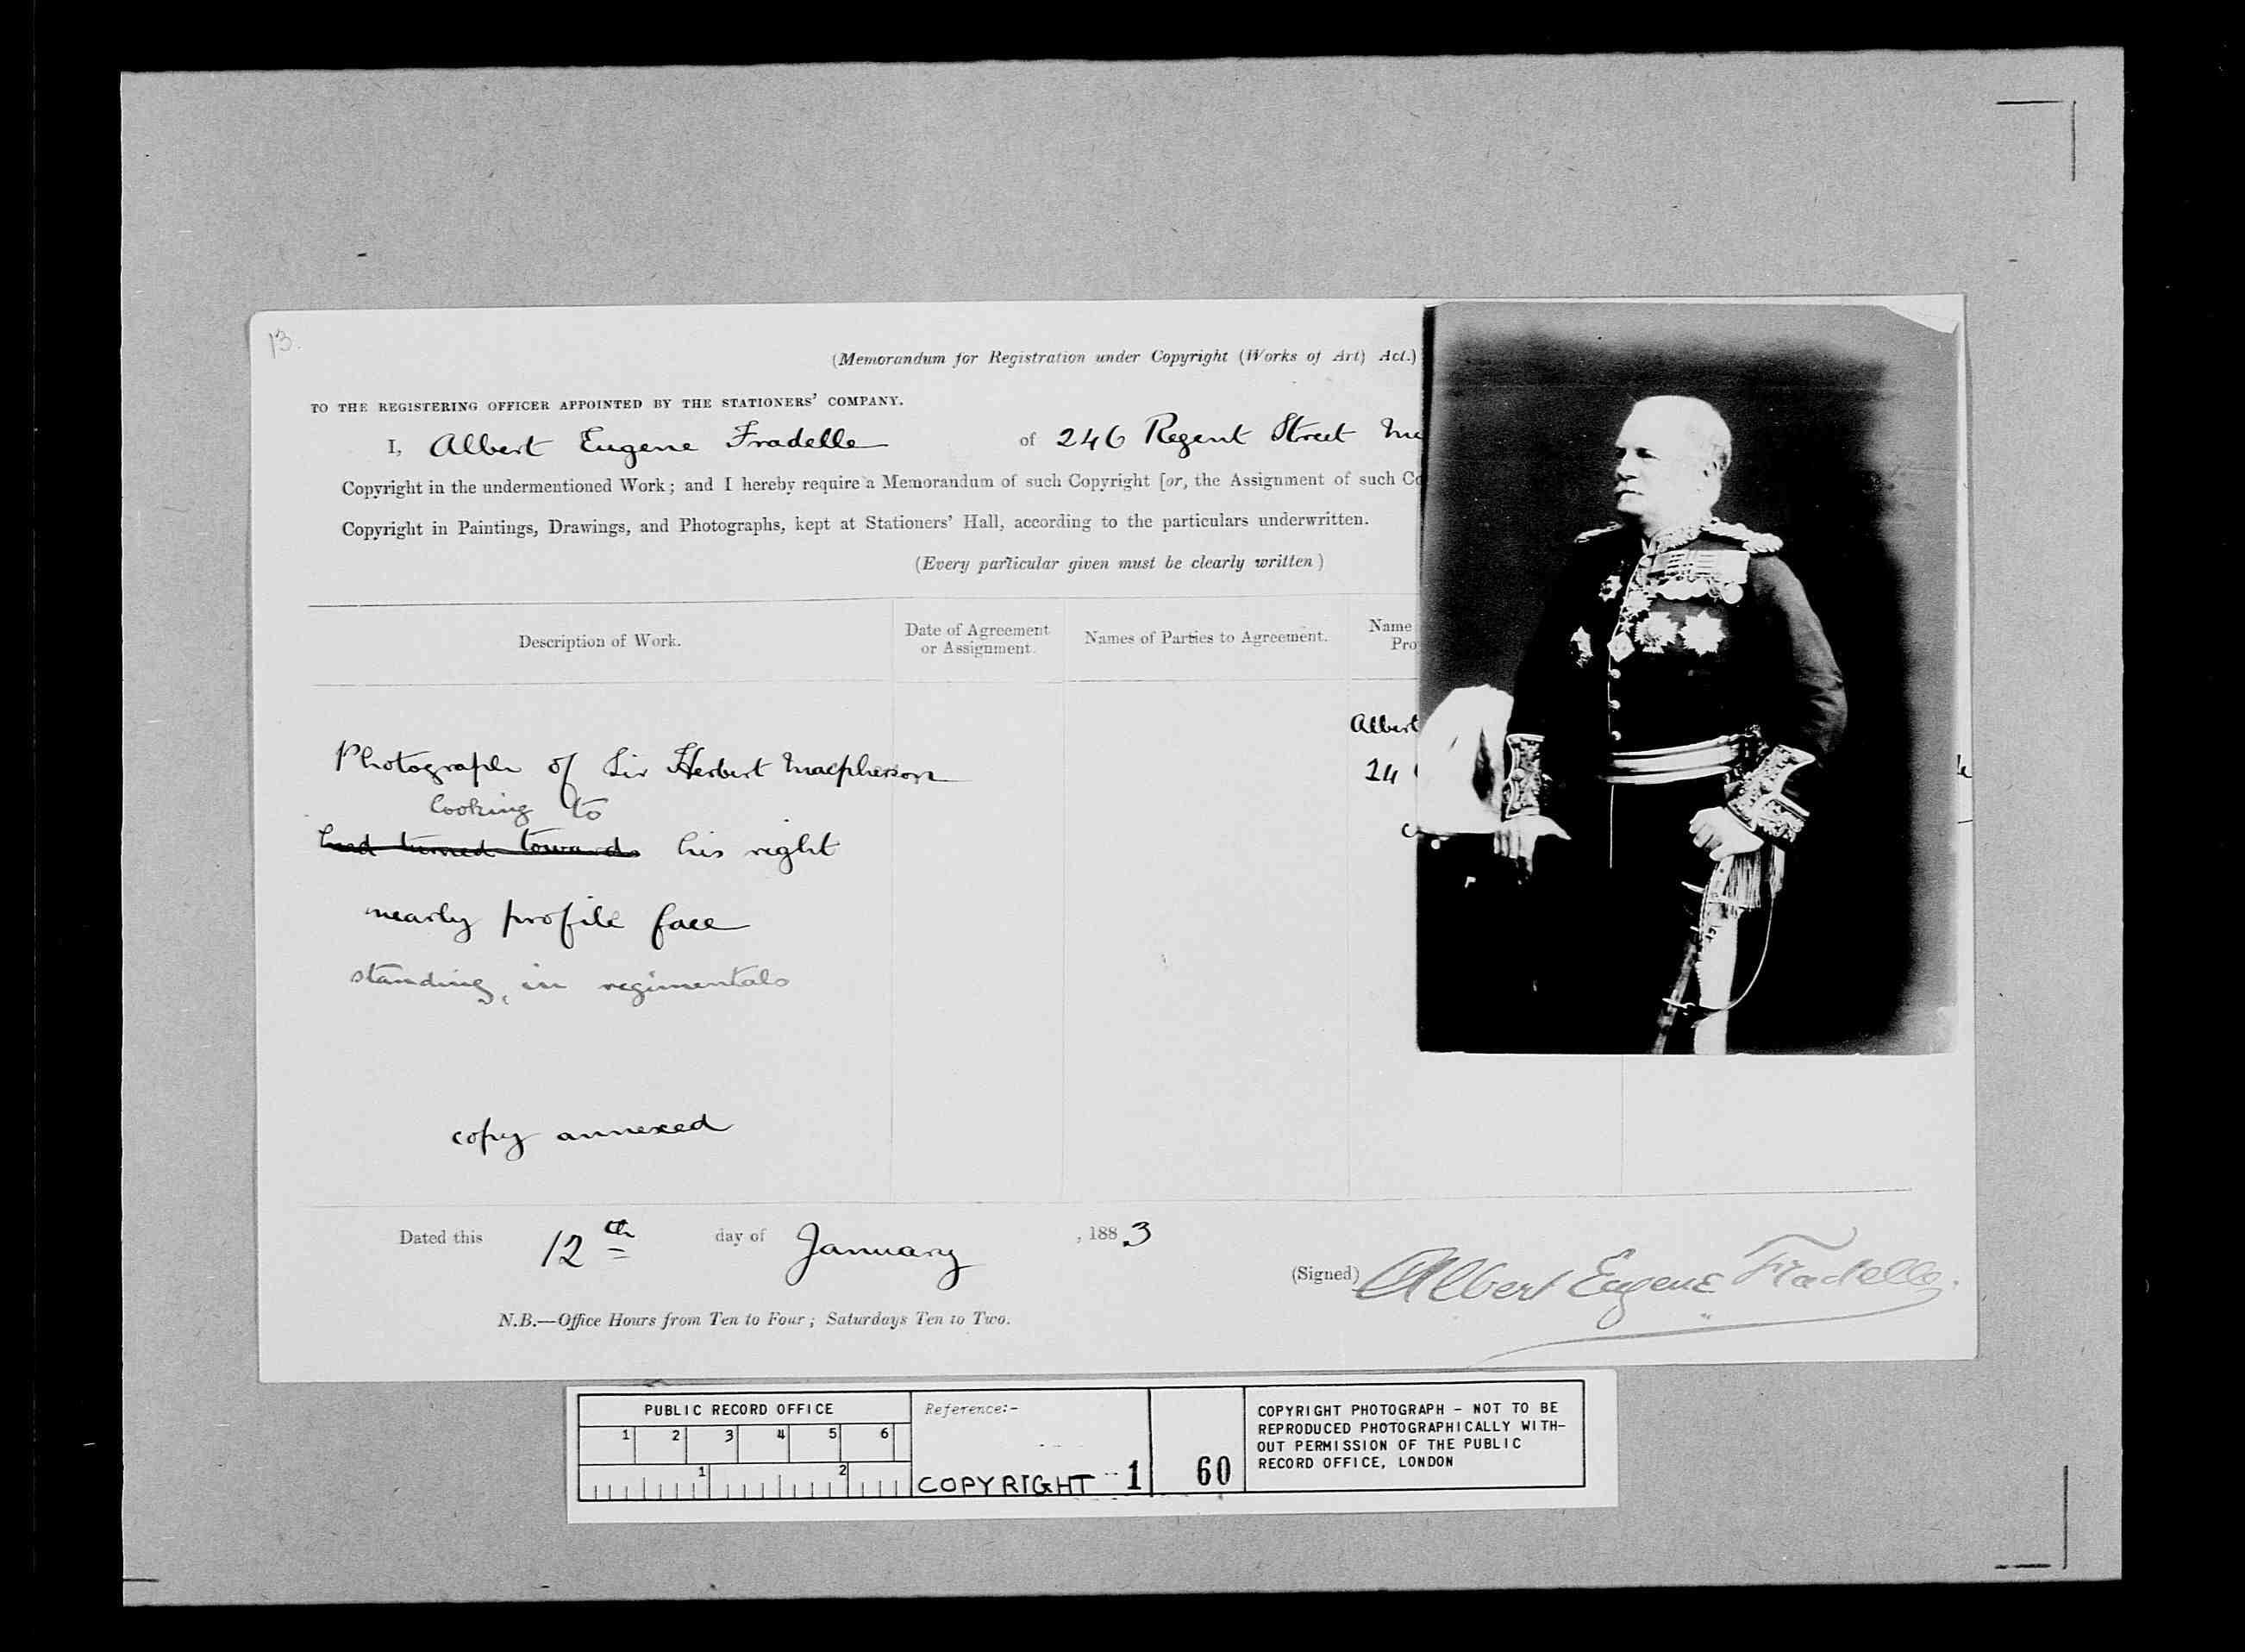 13.
(Memorandum for Registration under Copyright (Works of Art) Act.)
TO THE REGISTERING OFFICER APPOINTED BY THE STATIONERS' COMPANY.
I, Albert Eugene Fradelle of 246 Regent Street
Copyright in the undermentioned Work; and I hereby require a Memorandum of such Copyright [or, the Assignment of such Co
Copyright in Paintings, Drawings, and Photographs, kept at Stationers' Hall, according to the particulars underwritten.
(Every particular given must be clearly written)
Description of Work.
Date of Agreement
or Assignment.
Names of Parties to Agreement.
Name
Pro
Photograph of Sir Herbert Macpherson
looking to
head turned towards his right
nearly profile face
standing, in regimentals
copy annexed
Albert
24
Dated this 12th day of January, 1883
(Signed) Albert Eugene Fradelle.
N.B.—Office Hours from Ten to Four; Saturdays Ten to Two.
PUBLIC RECORD OFFICE
1 2 3 4 5 6
1 2
Reference:-
COPYRIGHT 1
60
COPYRIGHT PHOTOGRAPH - NOT TO BE
REPRODUCED PHOTOGRAPHICALLY WITH-
OUT PERMISSION OF THE PUBLIC
RECORD OFFICE, LONDON